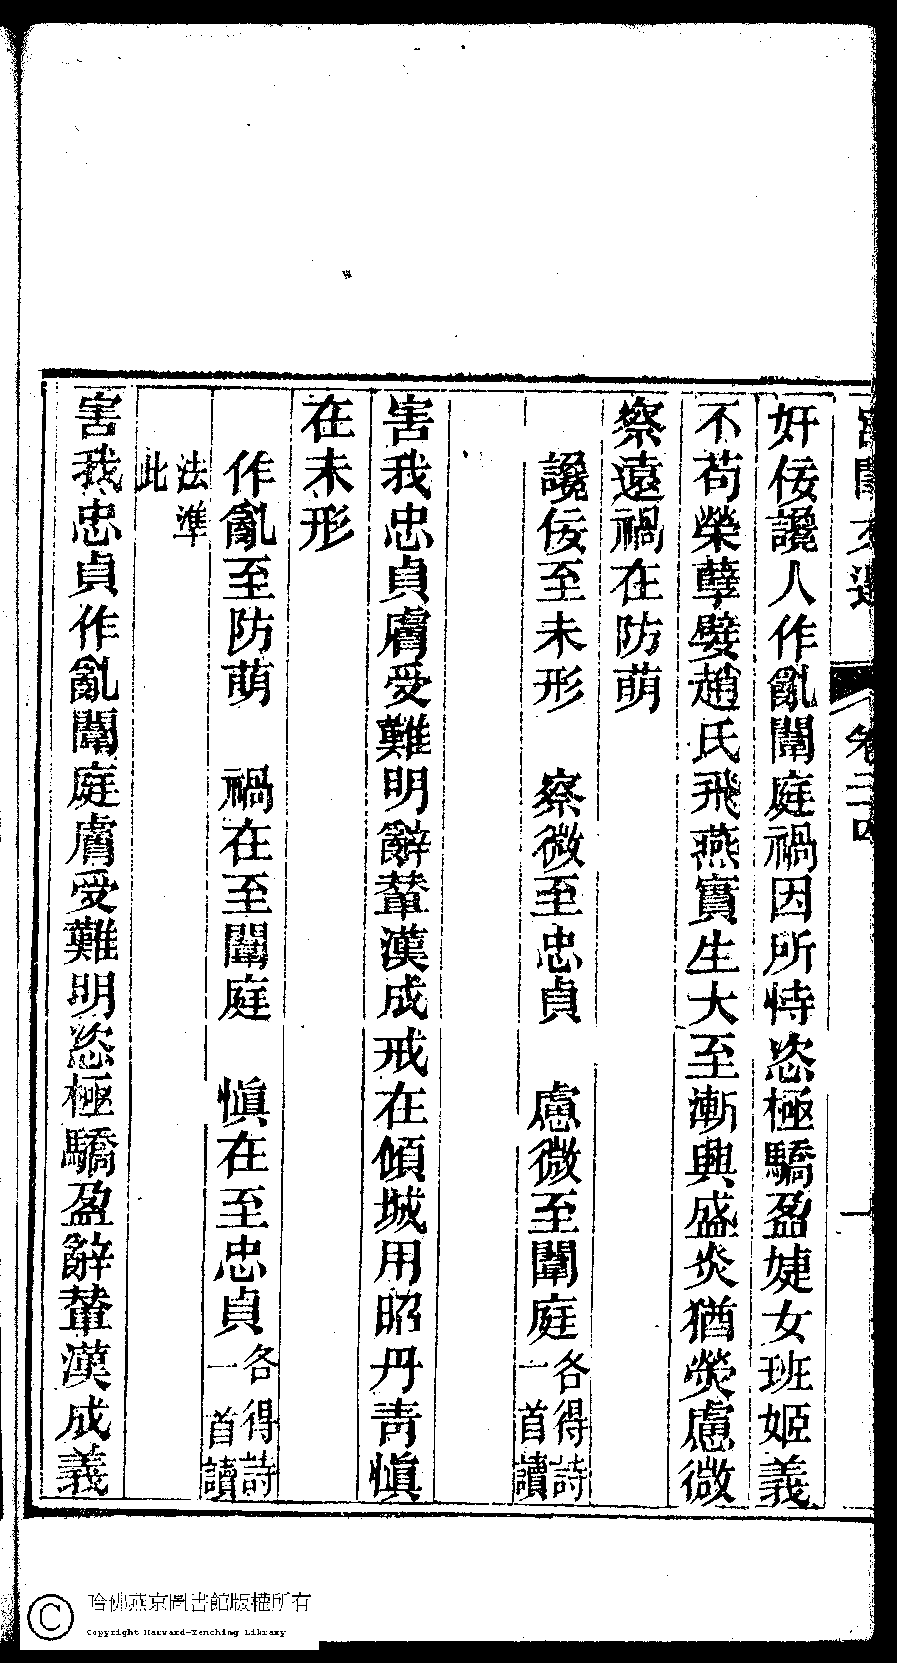 宮閨文選 卷二
奸佞讒人作亂闈庭禍因所恃恣極驕盈婕女班姬義
不苟榮孽嬖趙氏飛燕實生大至漸興盛炎猶熒慮微
察遠禍在防萌
讒佞至未形　察微至忠貞　慮微至闈庭各得詩一首讀
害我忠貞膚受難明辭輦漢成戒在傾城用昭丹青慎
在未形
作亂至防萌　禍在至闈庭　慎在至忠貞各得詩一首讀
法準此
害我忠貞作亂闈庭膚受難明恣極驕盈辭輦漢成義
哈佛燕京圖書館版權所有
Copyright Harvard-Yenching Library